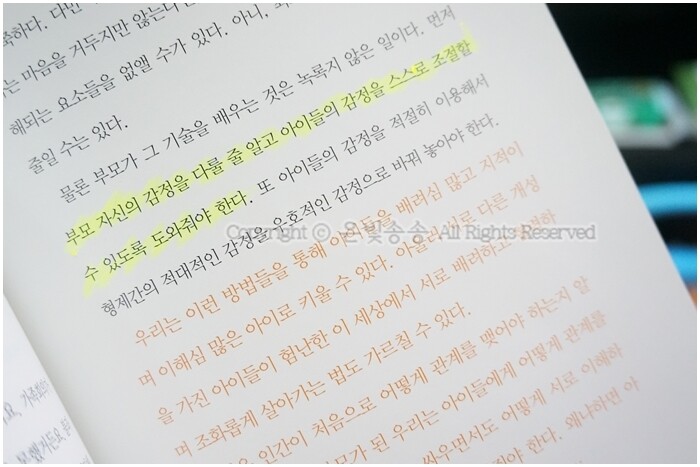 죽하다. 다만
는 마음을 거두지만 않는다면
해되는 요소들을 없앨 수가 있다. 아니,
줄일 수는 있다.
물론 부모가 그 기술을 배우는 것은 녹록지 않은 일이다. 먼저
부모 자신의 감정을 다룰 줄 알고 아이들의 감정을 스스로 조절할
수 있도록 도와줘야 한다. 또 아이들의 감정을 적절히 이용해서
형제간의 적대적인 감정을 우호적인 감정으로 바꿔 놓아야 한다.
우리는 이런 방법들을 통해 아이들을 배려심 많고 지적이
며 이해심 많은 아이로 키울 수 있다. 아울러 서로 다른 개성
을 가진 아이들이 험난한 이 세상에서 서로 배려하고
며 조화롭게 살아가는 법도 가르칠 수 있다.
인간이 처음으로 어떻게 관계를 맺어야 하는지 알
부모가 된 우리는 아이들에게 어떻게 관계를
싸우면서도 어떻게 서로 이해하
한다. 왜냐하면 아
Copyright ⓒ 은빛송송 All Rights Reserved